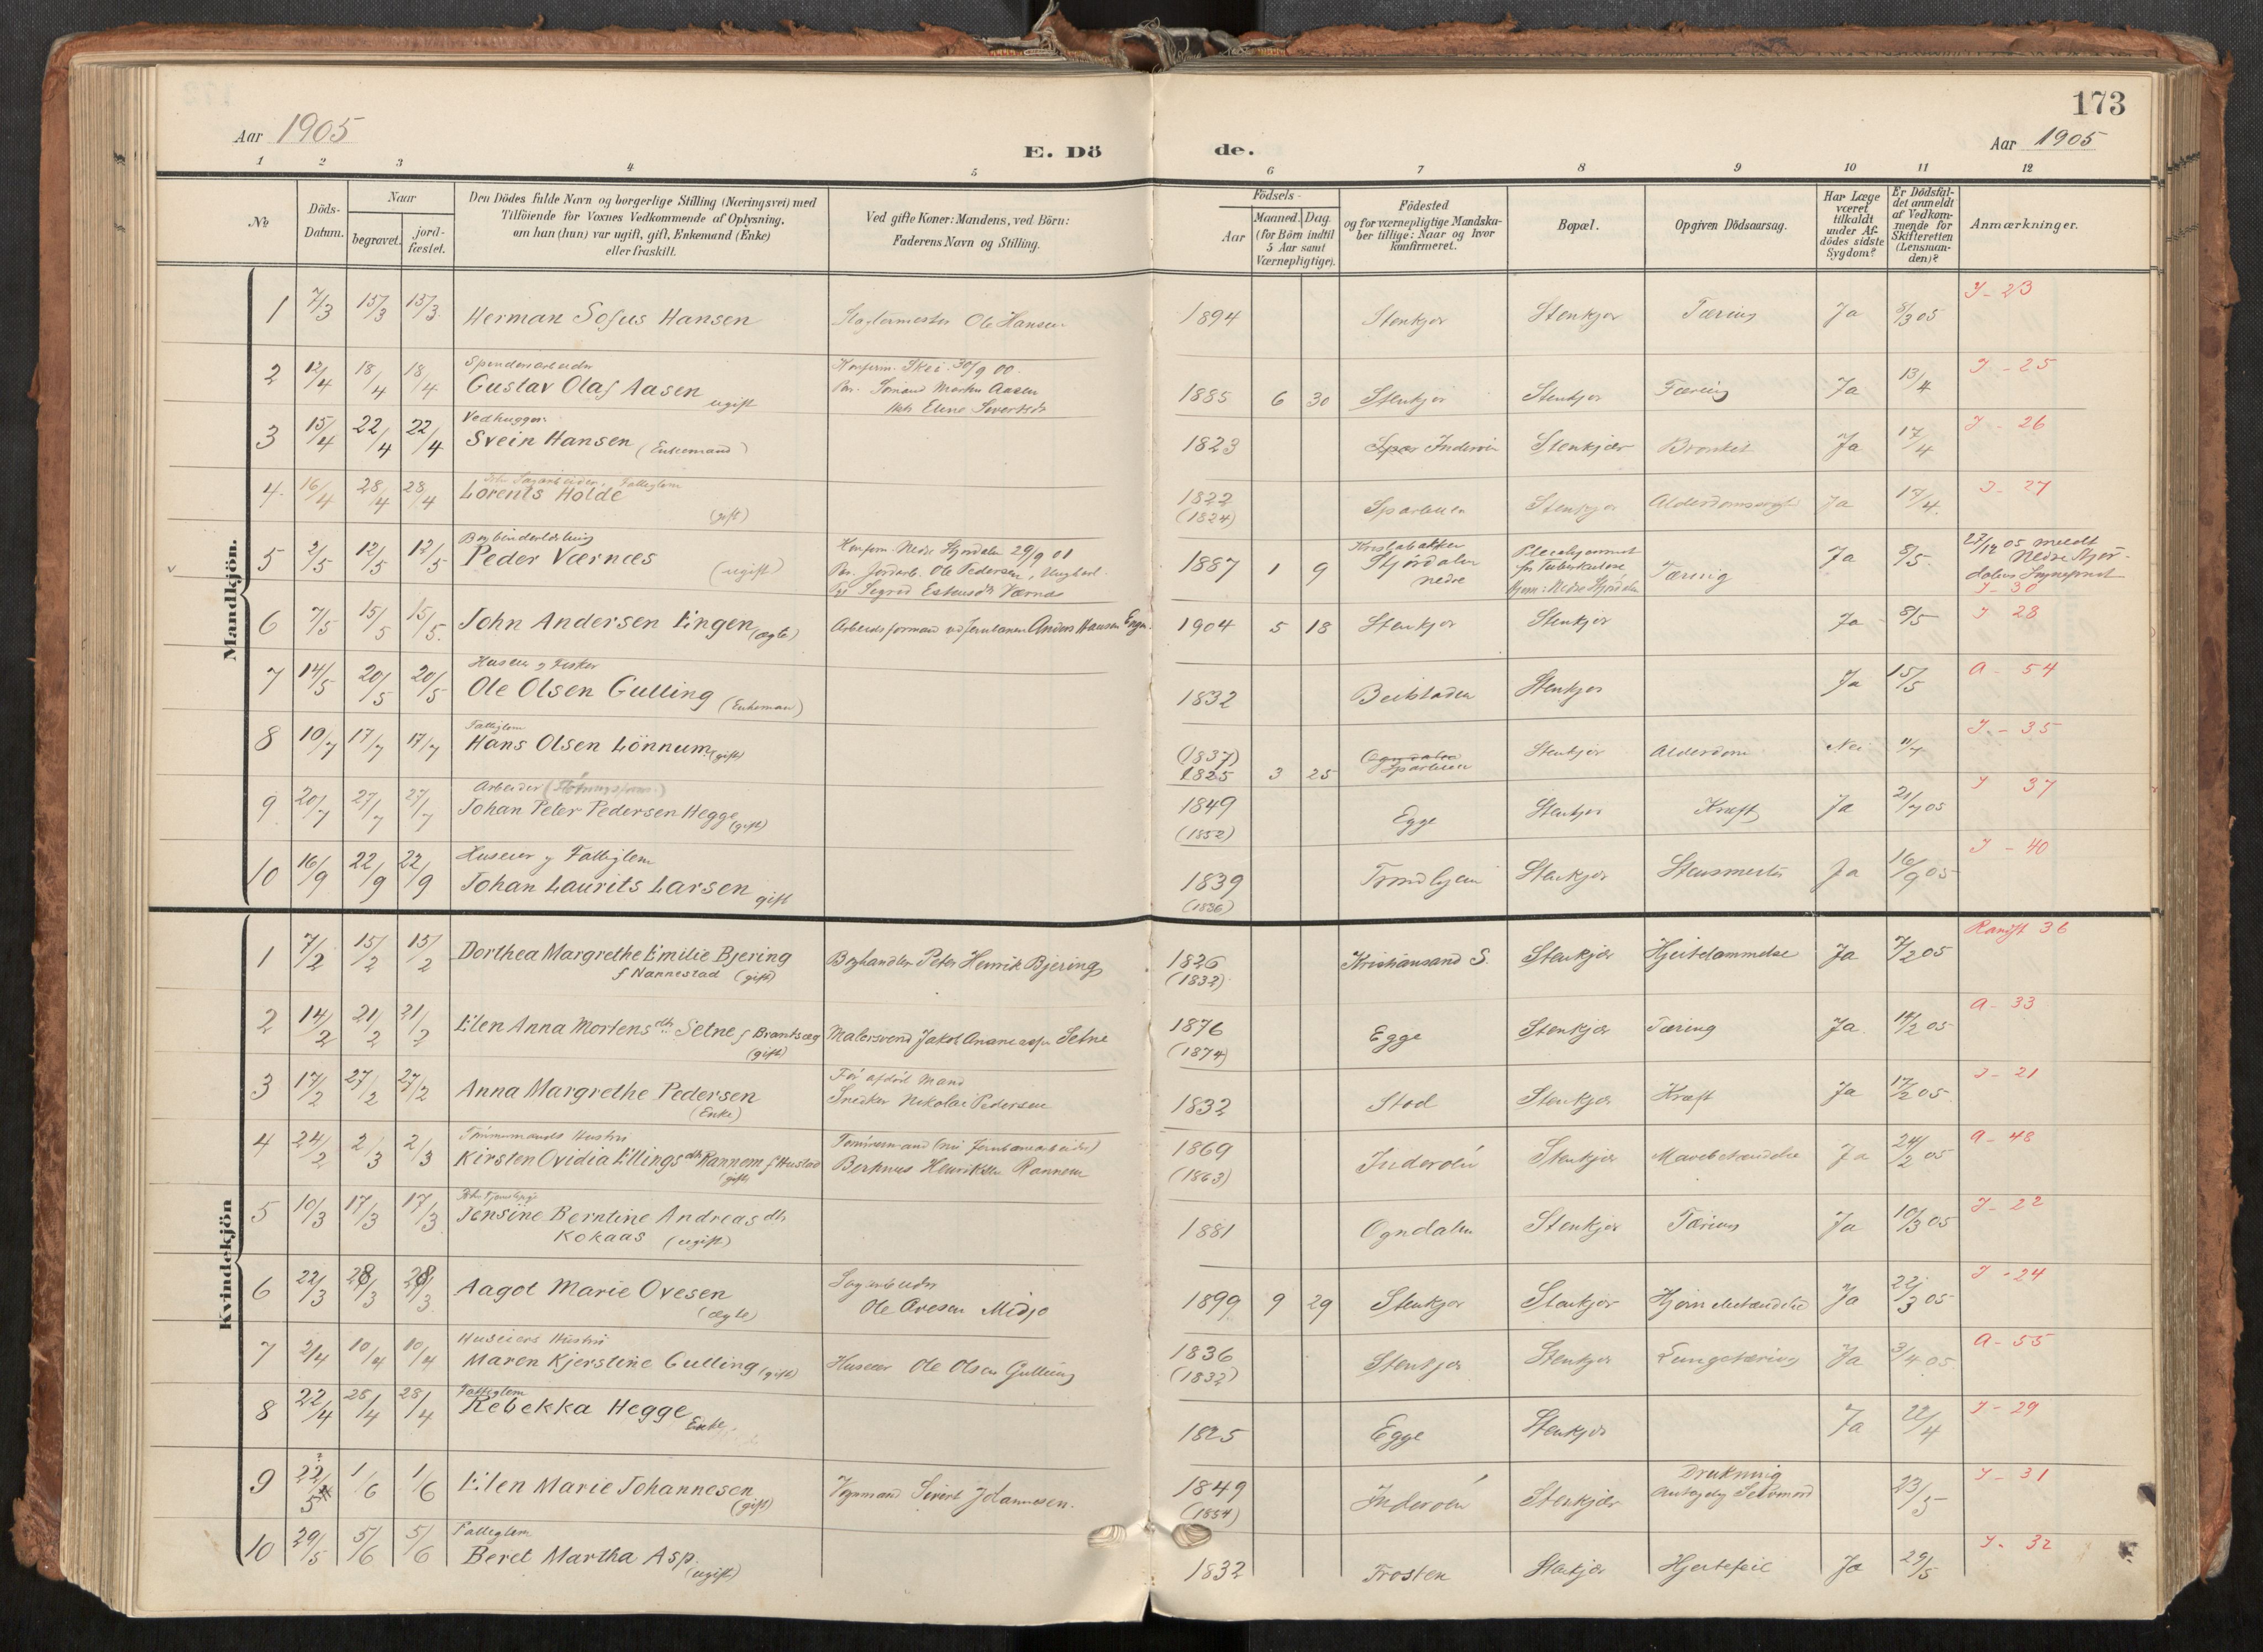 173
Aar 1905
E. Dö de.
Aar 1905
1 2 3 4 5 6 7 8 9 10 11 12
№
Döds-Datum.
Naar
begravet.
jord-fæstet.
Den Dödes fulde Navn og borgerlige Stilling (Næringsvei) med
Tilföiende for Voxnes Vedkommende af Oplysning,
om han (hun) var ugift, gift, Enkemand (Enke)
eller fraskilt.
Ved gifte Koner: Mandens, ved Börn:
Faderens Navn og Stilling.
Födsels-
Aar
Maaned. Dag
(for Börn indtil
5 Aar samt
Værnepligtige).
Födested
og for værnepligtige Mandska-
ber tillige: Naar og hvor
konfirmeret.
Bopæl.
Opgiven Dödsaarsag.
Har Læge
været
tilkaldt
under Af-
dödes sidste
Sygdom?
Er Dödsfal-
det anmeldt
af Vedkom-
mende for
Skifteretten
(Lensman-
den)?
Anmærkninger.
Mandkjön.
1 7/3 13/3 13/3 Herman Sofus Hansen Slagtermester Ole Hansen 1894 Stenkjer Stenkjer Tæring Ja 8/3 05 J - 23
Spendesarbeider Konfirm. Skei 30/9 00.
2 12/4 18/4 18/4 Gustav Olaf Aasen ugift Martin Aasen 1885 6 30 Stenkjer Stenkjer Tæring Ja 13/4 J - 25
Eline Sivertsdt
Vedhugger
3 15/4 22/4 22/4 Svein Hansen (Enkemand) 1823 Inderøen Stenkjær Bronkit Ja 17/4 J - 26
Fattiglem
4. 16/4 28/4 28/4 Lorents Holde (gift) 1822 (1824) Sparbuen Stenkjer Ja 17/4. J - 27
Konfirm. Nedre Stjørdalen 29/9 01
5 2/5 12/5 12/5 Peder Værnæs (ugift) Ole Pedersen, Ungkarl 1887 1 9 Stjørdalen nedre Pleiehjemmet for Tuberkuløse Hjem: Nedre Stjørdalen Tæring Ja 8/5. 27/12 05 meldt Nedre Stjør-
dalens Sogneprest
J - 30
6 7/5 15/5 15/5. John Andersen Engen (ægte) Arbeidsformand ved Jernbanen Anders Hansen Engen. 1904 5 18 Stenkjer Stenkjer Ja 8/5 J 28
Huseier og Fisker
7 14/5 20/5 20/5 Ole Olsen Gulling (Enkeman) 1832 Beitstaden Stenkjer Ja 15/5 a - 54
Fattiglem
8 10/7 17/7 17/7 Hans Olsen Lönnum (gift) (1837) 1825 3 25 Ogndalen Sparbuen Stenkjer Alderdom Nei 11/7 J. - 35
Arbeider
9 20/7 27/7 27/7 Johan Peter Pedersen Hegge (gift) 1849 (1852) Egge Stenkjer Kræft Ja 21/7 05 J 37
Huseier og Fattiglem
10 16/9 22/9 22/9 Johan Laurits Larsen gift 1839 (1836) Trondhjem Stenkjer Stensmerter Ja 16/9 05 J - 40
Kvindekjön
1 7/2 15/2 15/2 Dorthea Margrethe Emilie Bjering f Nannestad (gift) Boghandler Peter Henrik Bjering 1826 (1832) Kristiansand S. Stenkjer Hjertelammelse Ja 7/2 05 36
2 14/2 21/2 21/2 Elen Anna Mortensdtr Setne f Brantsæg (gift) Malersvend Jakob Setne 1876 (1874) Egge Stenkjer Tæring Ja. 14/2 05 a - 33
Før afdød Mand
3 17/2 27/2 27/2 Anna Margrethe Pedersen (Enke) Snedker Nikolai Pedersen 1832 Stod Stenkjer Kræft Ja 17/2 05. J - 21
Tömmermands Hustru Tømmermand (nu Jernbanearbeider)
4 24/2 2/3 2/3 Kirsten Ovidia Ellingsdtr Rannem f Hustad (gift) Henriksen Rannem 1869 (1863) Inderøen Stenkjer Mavebetændelse Ja 24/2 05 a - 48
5 10/3 17/3 17/3 Jensine Berntine Andreasdtr
Kokaas (ugift) 1881 Ogndalen Stenkjer Tæring Ja 10/3 05 J - 22
Sagarbeider
6 22/3 28/3 28/3 Aagot Marie Ovesen (ægte) Ole Ovesen Midjo 1899 9 29 Stenkjer Stenkjer Hjernebetændelse Ja 22/3 05 J - 24
Huseiers Hustru
7 2/4 10/4 10/4 Maren Kjerstine Gulling (gift) Huseier Ole Olsen Gulling 1836 (1832) Stenkjer Stenkjer Lungetæring Ja 3/4 05 a - 55
Fattiglem
8 22/4 28/4 28/4 Rebekka Hegge Enke 1825 Egge Stenkjer Ja 22/4 J - 29
9 22/5 1/6 1/6 Elen Marie Johannesen (gift) Vognmand Sivert Johannesen. 1849 (1854) Inderøen Stenkjær Drukning antagelig Selvmord 23/5 J - 31
Fattiglem
10 29/5 5/6 5/6 Beret Martha Asp. (ugift) 1832 Frosten Stenkjer Hjertefeil Ja 29/5 J. 32